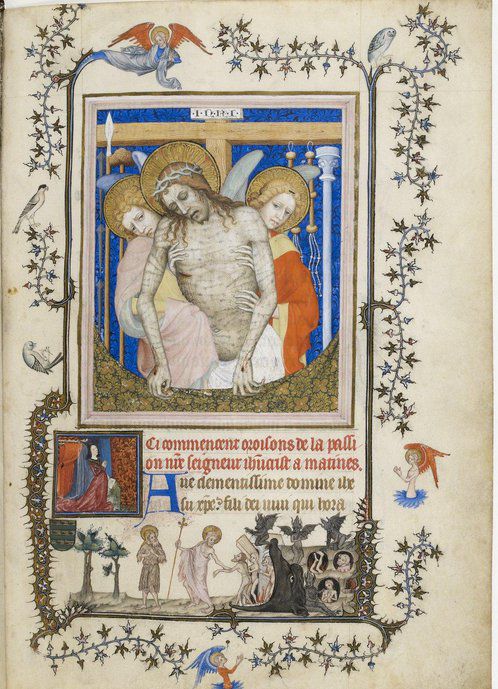 ·I·N·R·I·
Ci commencent oroisons de la passi
on nr̄e seigneur ihūcrist a matines.
Aue clementissime domine ihe
su xp̄e fili dei uiui qui hora